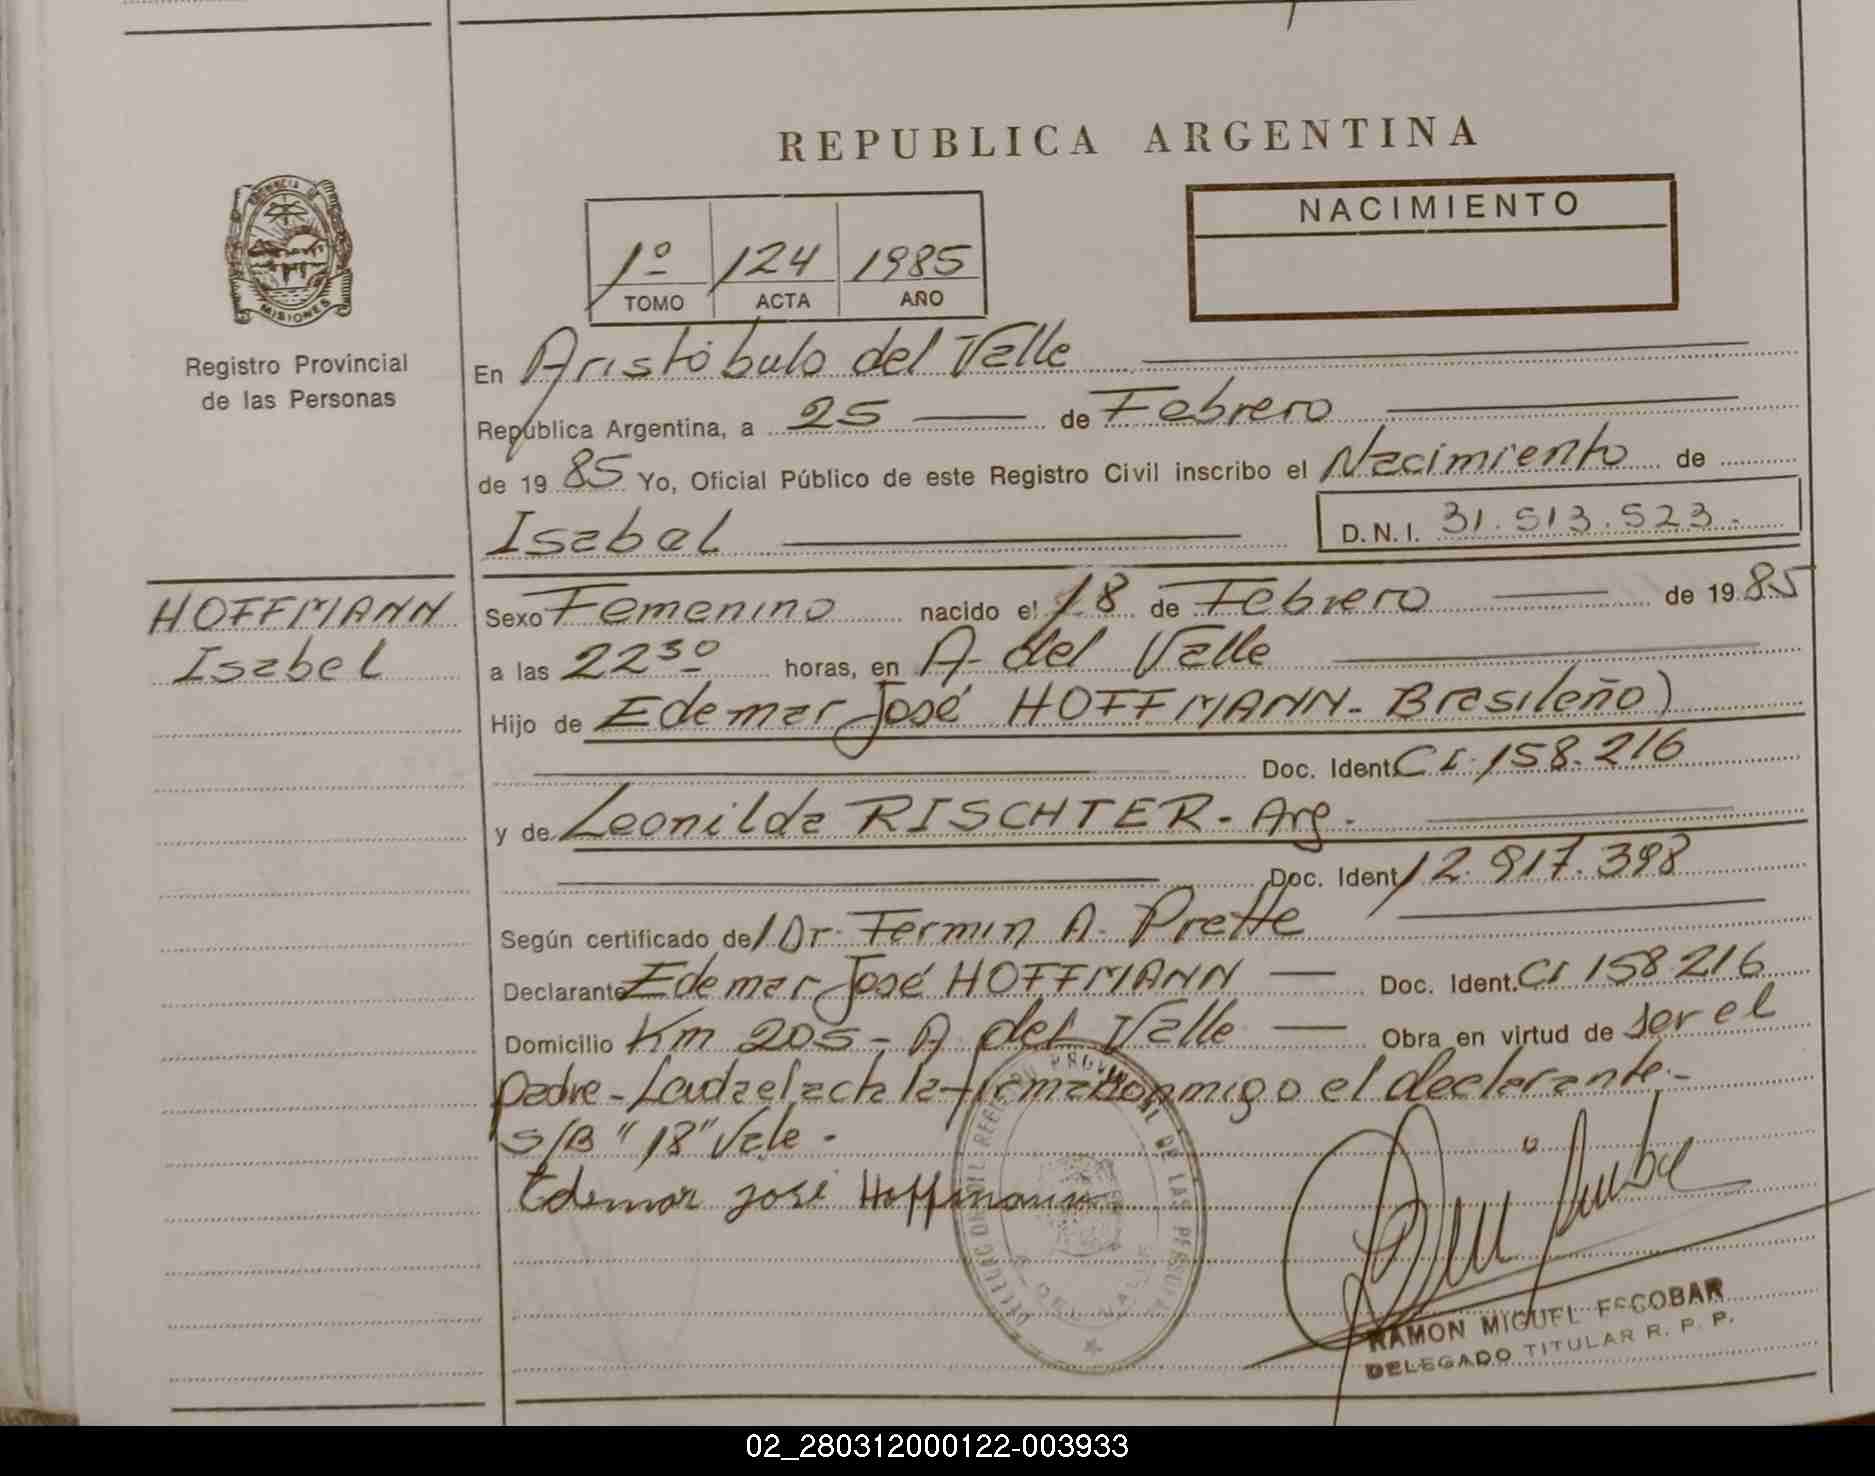 REPUBLICA ARGENTINA
PROVINCIA DE
MISIONES
Registro Provincial
de las Personas
1º 124 1985
TOMO ACTA AÑO
NACIMIENTO
En Aristóbulo del Valle
República Argentina, a 25 de Febrero
de 1985 Yo, Oficial Público de este Registro Civil inscribo el Nacimiento de
Isabel
D.N.I. 31.513.523.-
HOFFMANN
Isabel
Sexo Femenino nacido el 18 de Febrero de 1985
a las 22³⁰ horas, en A. del Valle
Hijo de Edemar José HOFFMANN- Brasileño)
Doc. Ident. CI. 158.216
y de Leonilda RISCHTER- Arg.
Doc. Ident. 12.917.398
Según certificado de/ Dr. Fermin A. Prette
Declarante Edemar José HOFFMANN Doc. Ident. CI 158216
Domicilio Km 205- A del Valle Obra en virtud de ser el
padre- Leida el acta la firma conmigo el declarante.-
S/B "18" Vale.-
Edemar José Hoffmann
PROVINCIAL DE LAS PERSONAS
A. DEL VALLE
RAMON MIGUEL ESCOBAR
DELEGADO TITULAR R. P. P.
02_280312000122-003933